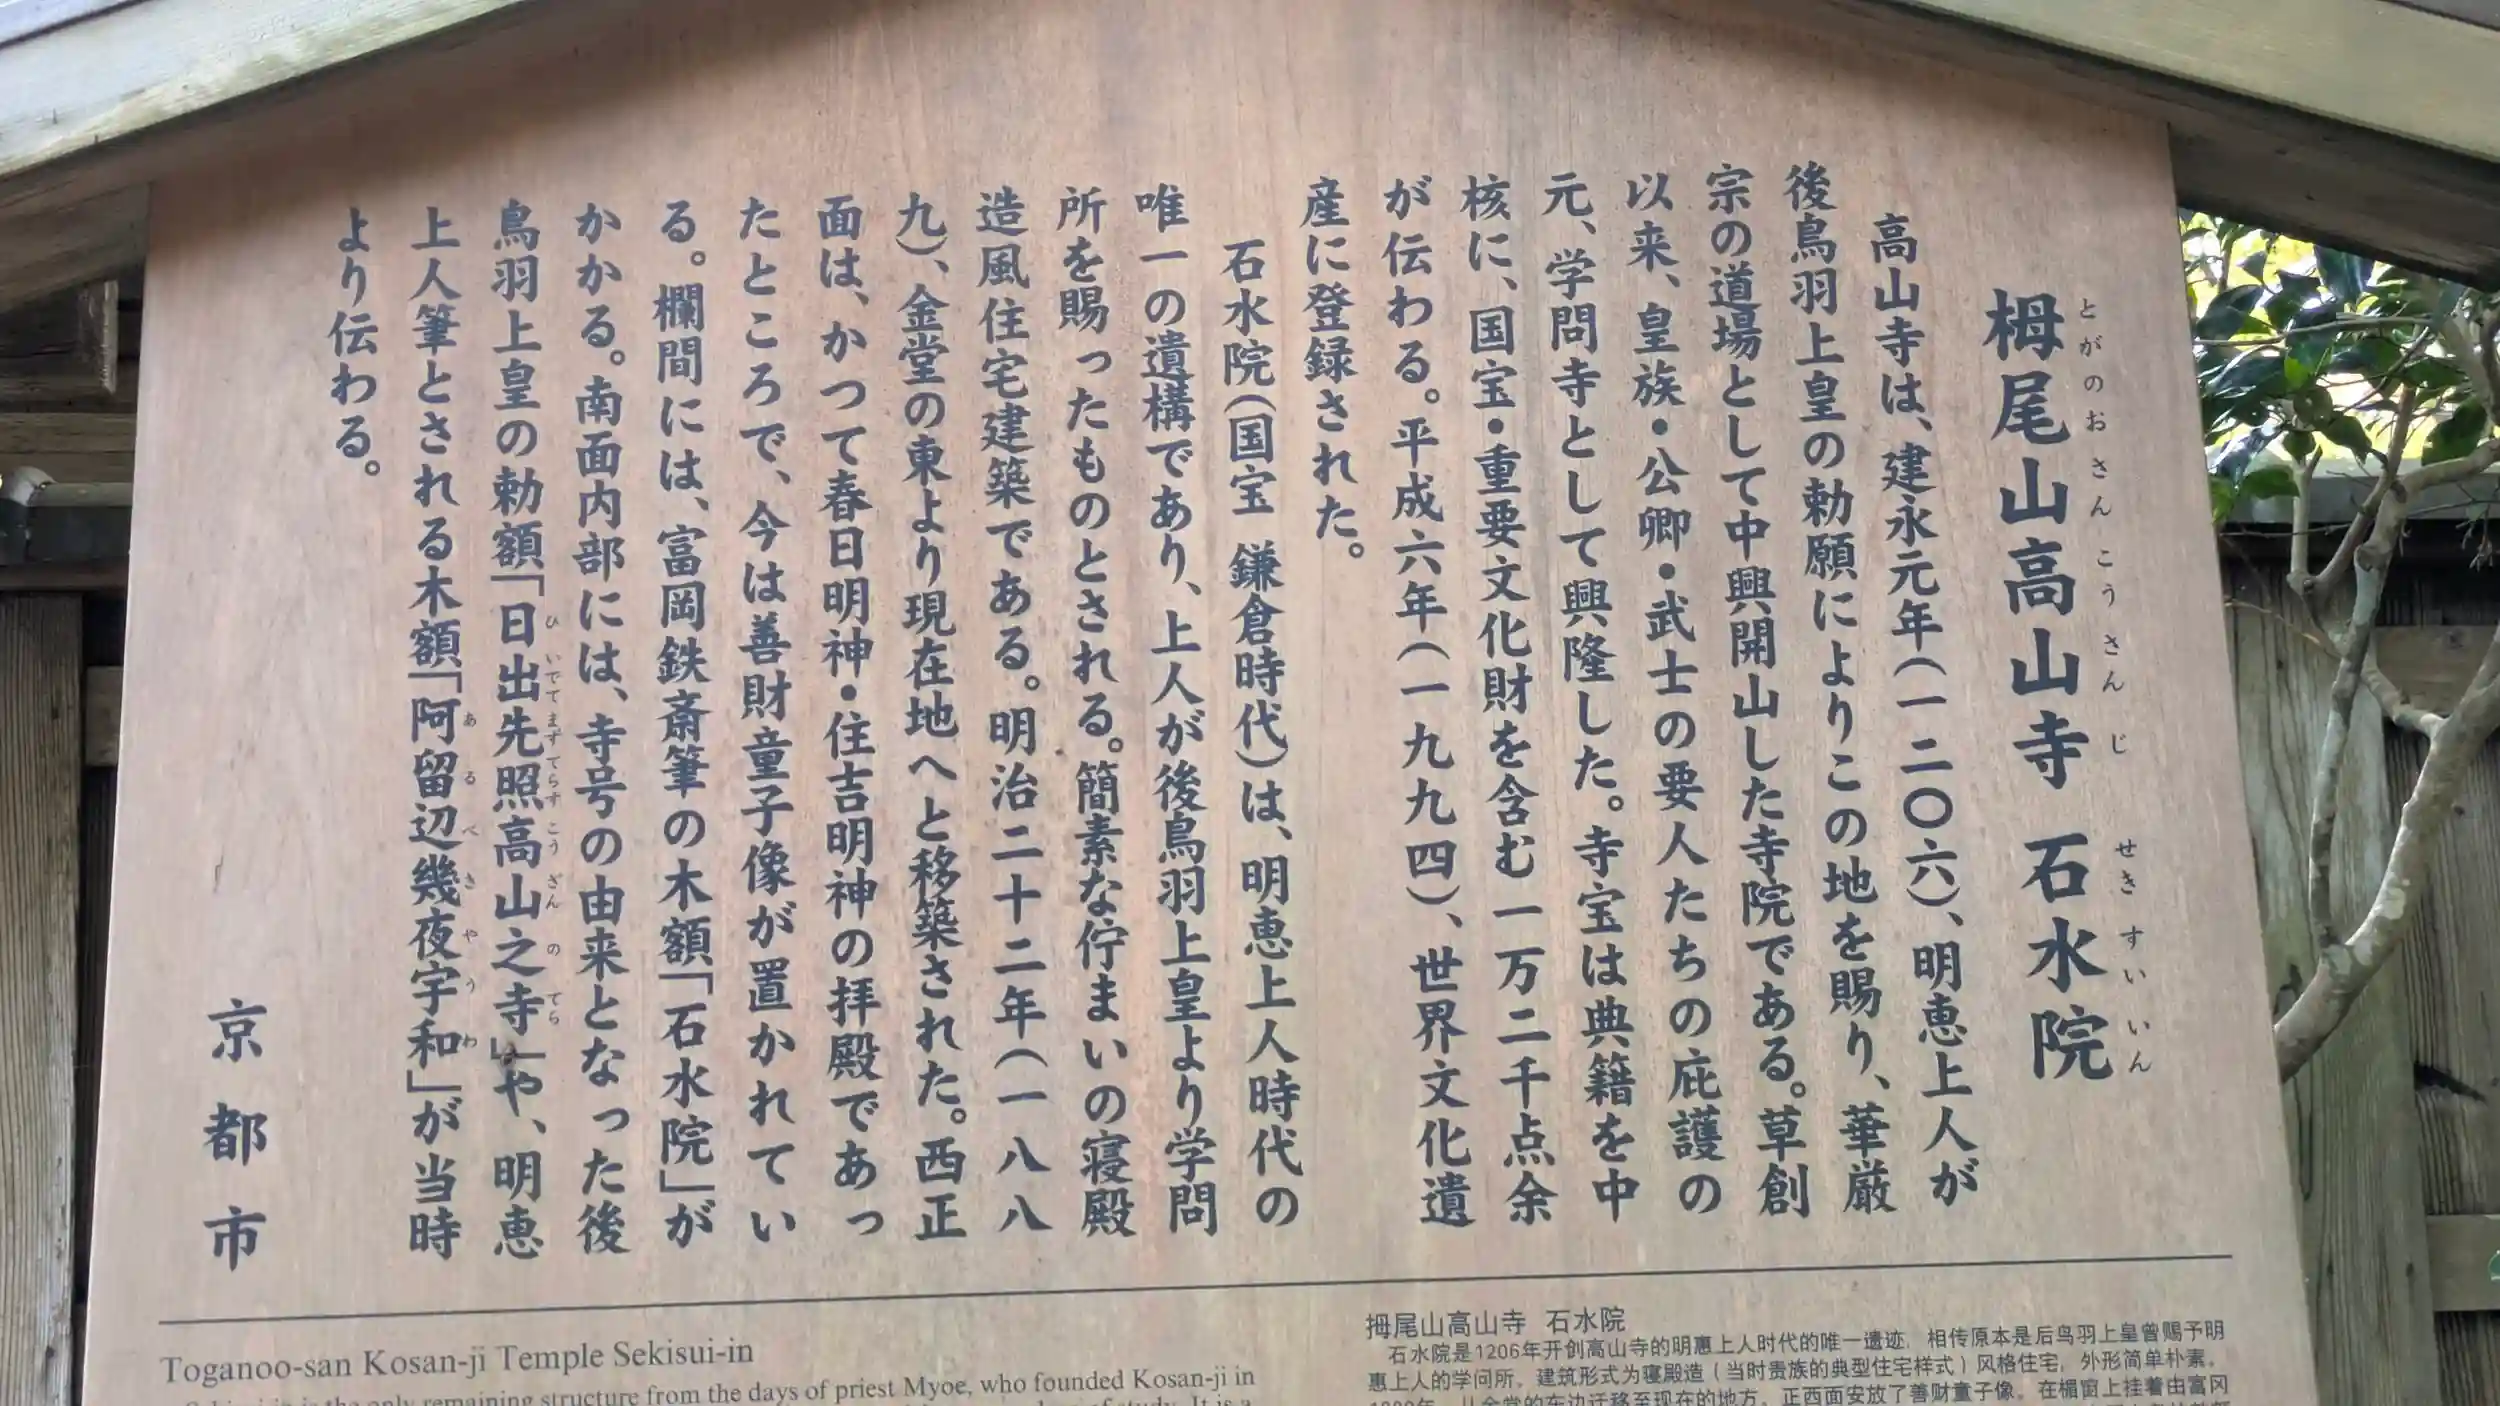 栂尾山高山寺 石水院
とがのおさんこうさんじ せきすいいん
高山寺は、建永元年（一二〇六）、明恵上人が
後鳥羽上皇の勅願によりこの地を賜り、華厳
宗の道場として中興開山した寺院である。草創
以来、皇族・公卿・武士の要人たちの庇護の
元、学問寺として興隆した。寺宝は典籍を中
核に、国宝・重要文化財を含む一万二千点余
が伝わる。平成六年（一九九四）、世界文化遺
産に登録された。
石水院（国宝 鎌倉時代）は、明恵上人時代の
唯一の遺構であり、上人が後鳥羽上皇より学問
所を賜ったものとされる。簡素な佇まいの寝殿
造風住宅建築である。明治二十二年（一八八
九）、金堂の東より現在地へと移築された。西正
面は、かつて春日明神・住吉明神の拝殿であっ
たところで、今は善財童子像が置かれてい
る。欄間には、富岡鉄斎筆の木額「石水院」が
かかる。南面内部には、寺号の由来となった後
鳥羽上皇の勅額「日出先照高山之寺」や、明恵
ひ いでて まず てらす こう ざん の てら
上人筆とされる木額「阿留辺幾夜宇和」が当時
あ る べ き や う わ
より伝わる。
京都市
Toganoo-san Kosan-ji Temple Sekisui-in
is the only remaining structure from the days of priest Myoe, who founded Kosan-ji in
拇尾山高山寺 石水院
石水院是1206年开创高山寺的明惠上人时代的唯一遗迹，相传原本是后鸟羽上皇曾赐予明
惠上人的学问所，建筑形式为寝殿造（当时贵族的典型住宅样式）风格住宅，外形简单朴素。
年，从金堂的东边迁移至现在的地方。正西面安放了善财童子像。在楣窗上挂着由富冈